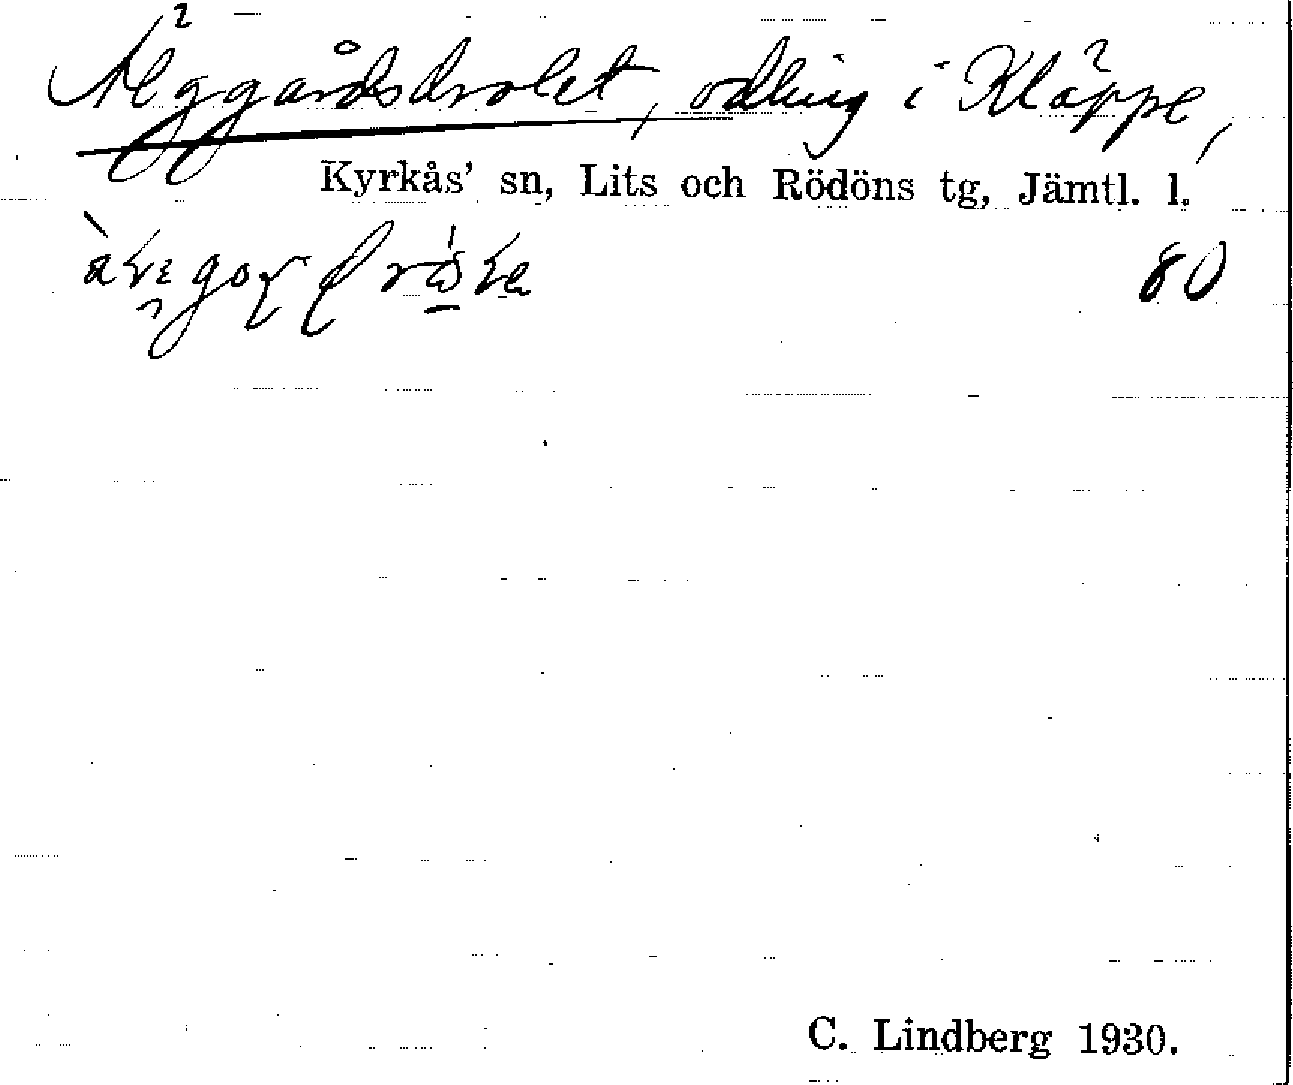 Älggårdsdrolet, odling i Kläppe,
Kyrkås' sn, Lits och Rödöns tg, Jämtl. l.
80
C. Lindberg 1930.